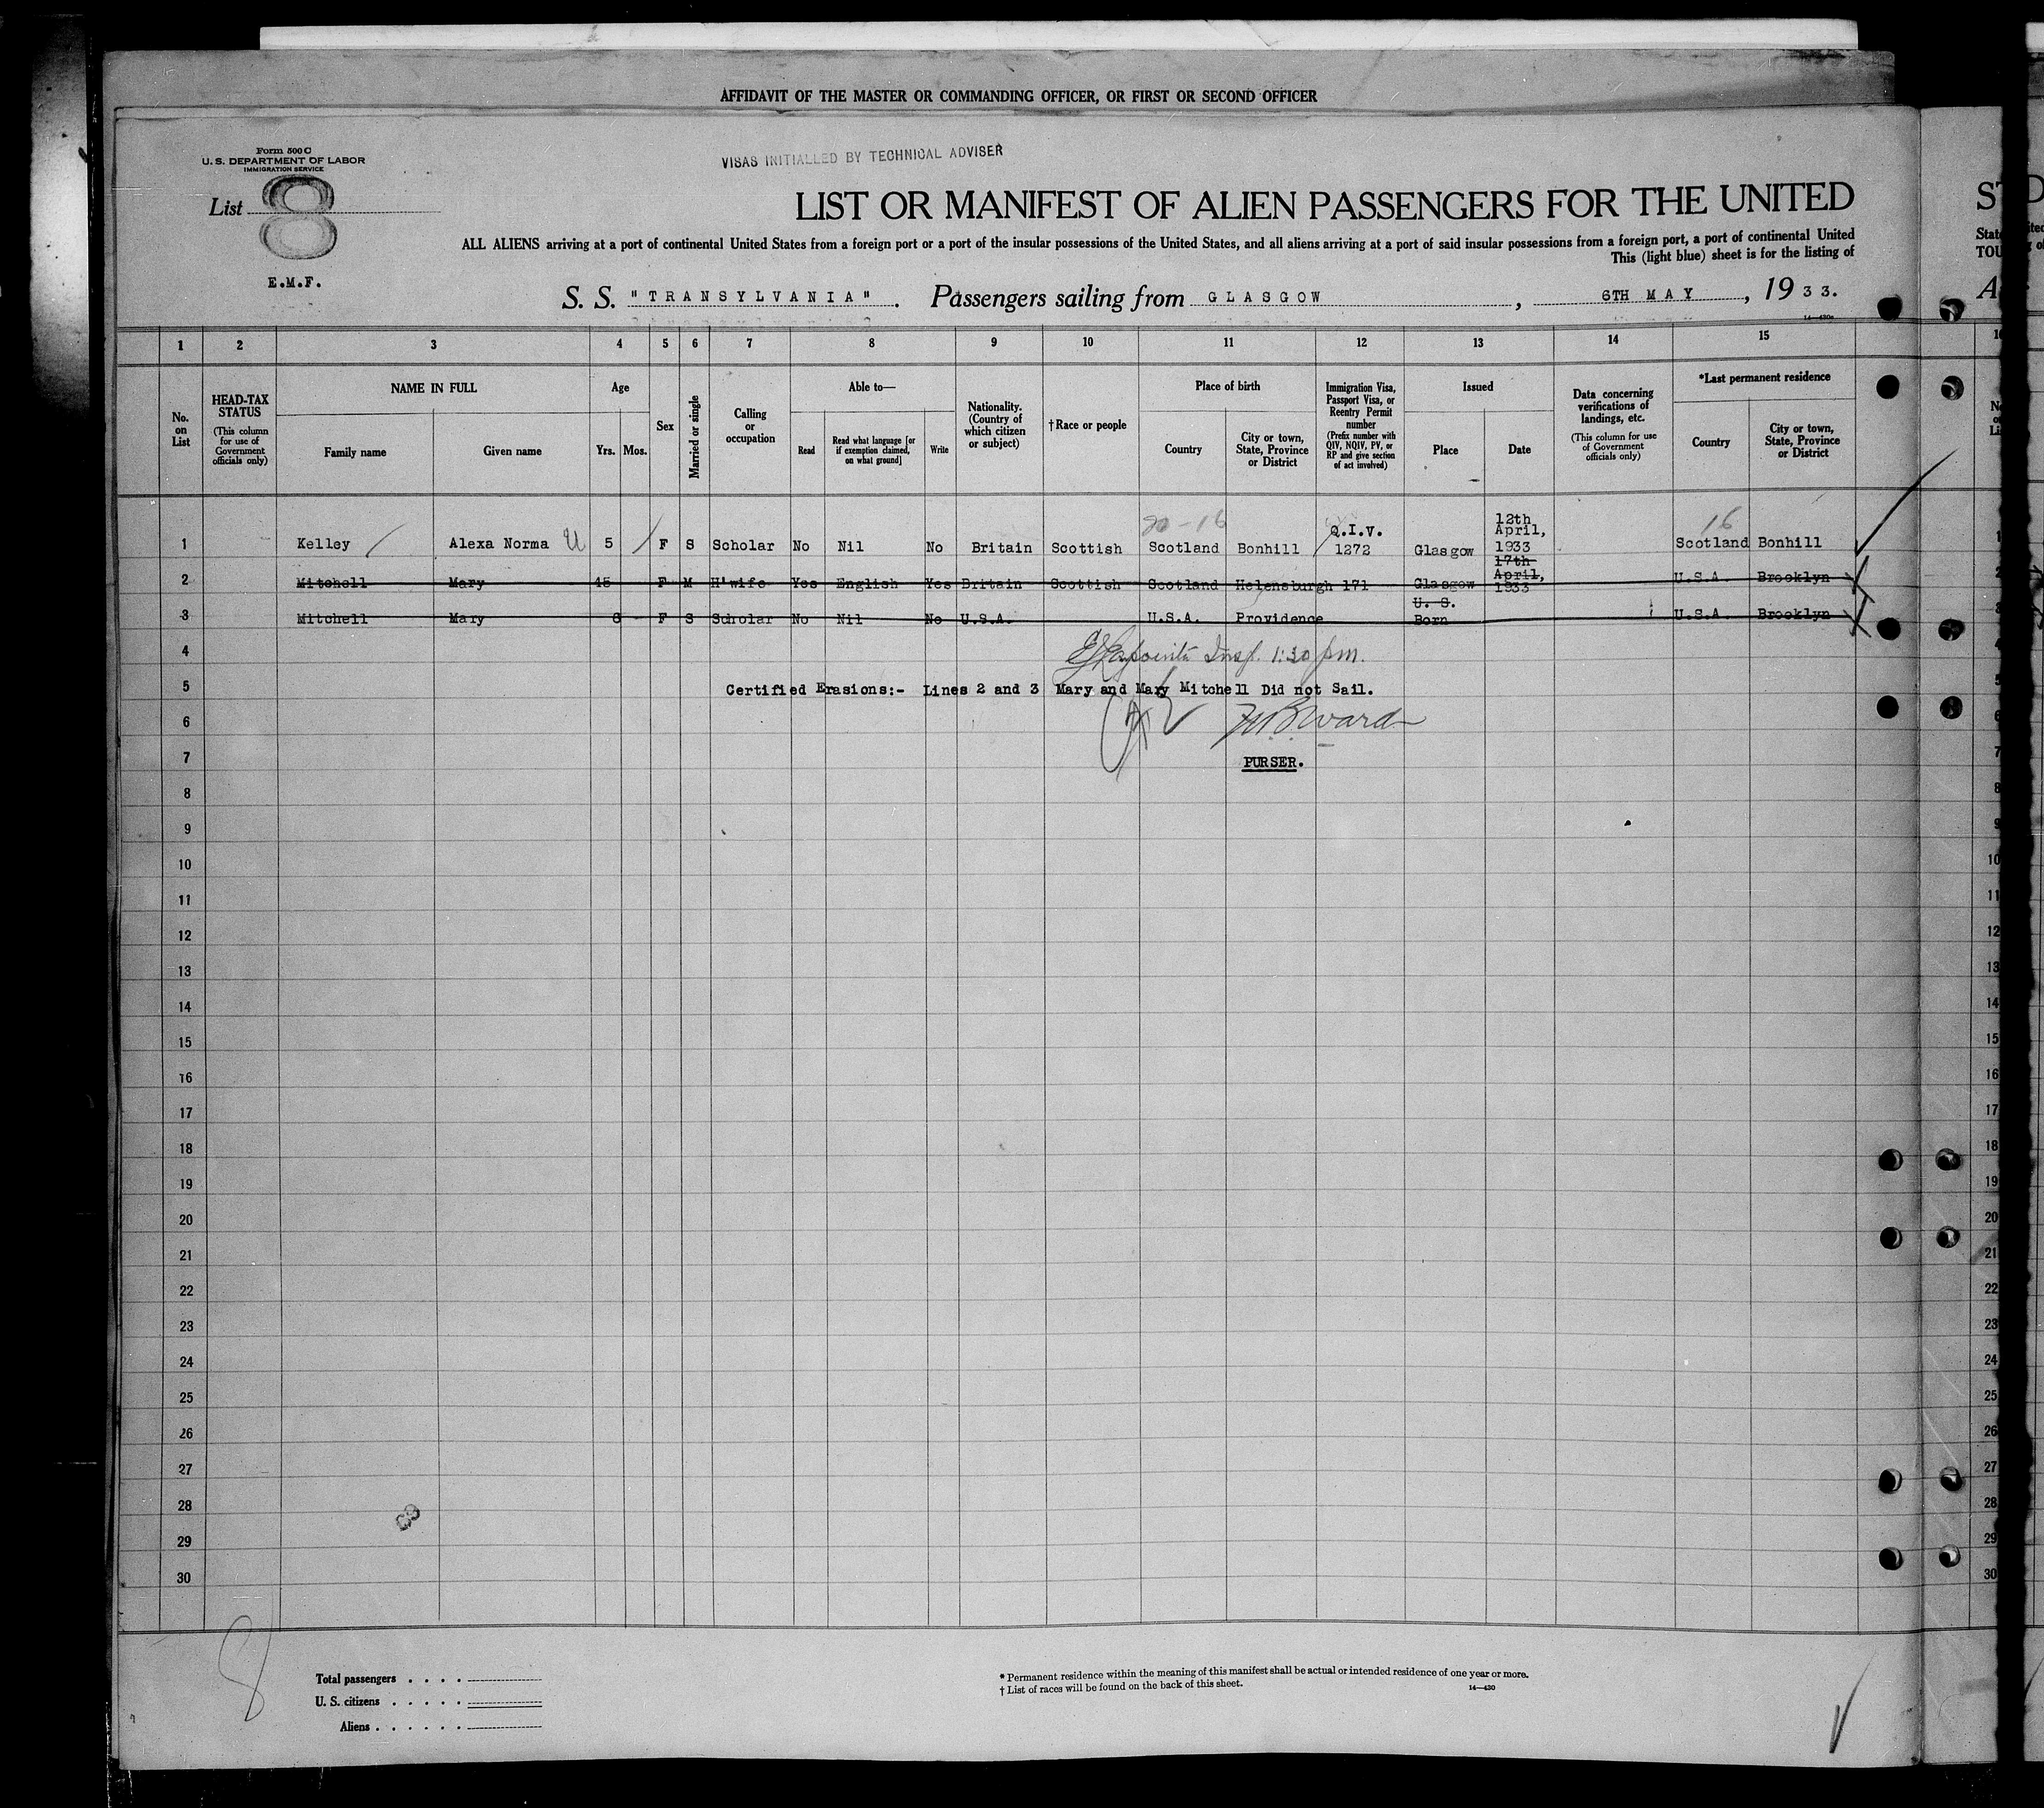 AFFIDAVIT OF THE MASTER OR COMMANDING OFFICER, OR FIRST OR SECOND OFFICER
Form 500 C
U. S. DEPARTMENT OF LABOR
IMMIGRATION SERVICE
VISAS INITIALLED BY TECHNICAL ADVISER
List 8
LIST OR MANIFEST OF ALIEN PASSENGERS FOR THE UNITED
ALL ALIENS arriving at a port of continental United States from a foreign port or a port of the insular possessions of the United States, and all aliens arriving at a port of said insular possessions from a foreign port, a port of continental United
This (light blue) sheet is for the listing of
E.M.F.
S. S. "TRANSYLVANIA". Passengers sailing from GLASGOW, 6TH MAY, 1933.
14—430a
1 2 3 4 5 6 7 8 9 10 11 12 13 14 15
No. on List
HEAD-TAX STATUS (This column for use of Government officials only)
NAME IN FULL
Family name Given name
Age
Yrs. Mos.
Sex
Married or single
Calling or occupation
Able to—
Read
Read what language [or if exemption claimed, on what ground]
Write
Nationality. (Country of which citizen or subject)
†Race or people
Place of birth
Country
City or town, State, Province or District
Immigration Visa, Passport Visa, or Reentry Permit number (Prefix number with QIV, NQIV, PV, or RP and give section of act involved)
Issued
Place Date
Data concerning verifications of landings, etc. (This column for use of Government officials only)
*Last permanent residence
Country
City or town, State, Province or District
20-16 16
1 Kelley Alexa Norma U 5 F S Scholar No Nil No Britain Scottish Scotland Bonhill Q.I.V. 1272 Glasgow 12th April, 1933 Scotland Bonhill
2 Mitchell Mary 45 F M H'wife Yes English Yes Britain Scottish Scotland Helensburgh 171 Glasgow 17th April, 1933 U.S.A. Brooklyn
3 Mitchell Mary 8 F S Scholar No Nil No U.S.A. U.S.A. Providence U. S. Born U.S.A. Brooklyn
4 Insp. 1:30 pm.
5 Certified Erasions:- Lines 2 and 3 Mary and Mary Mitchell Did not Sail.
6 Ward
7 PURSER.
8
9
10
11
12
13
14
15
16
17
18
19
20
21
22
23
24
25
26
27
28
29
30
8
Total passengers . . . .
U. S. citizens . . . . .
Aliens . . . . . .
* Permanent residence within the meaning of this manifest shall be actual or intended residence of one year or more.
† List of races will be found on the back of this sheet.
14—430